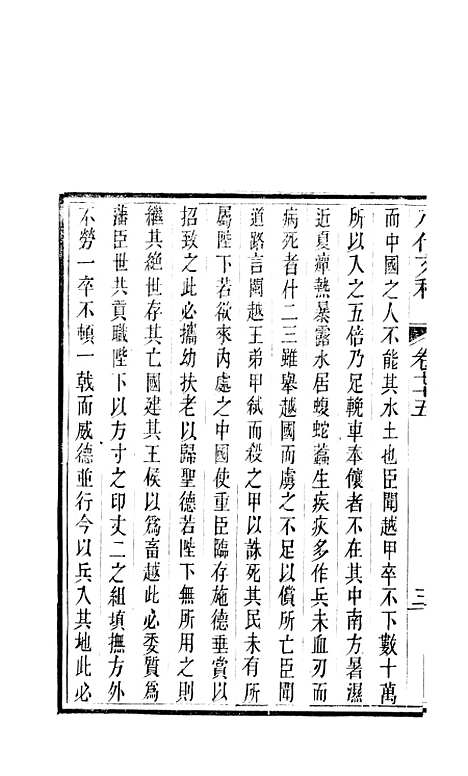 八代文粹 卷七十五 三
而中國之人不能其水土也臣聞越甲卒不下數十萬
所以入之五倍乃足輓車奉饟者不在其中南方暑濕
近夏癉熱暴露水居蝮蛇蠚生疾疢多作兵未血刃而
病死者什二三雖舉越國而虜之不足以償所亡臣聞
道路言閩越王弟甲弒而殺之甲以誅死其民未有所
屬陛下若欲來內處之中國使重臣臨存施德垂賞以
招致之此必攜幼扶老以歸聖德若陛下無所用之則
繼其絕世存其亡國建其王侯以爲畜越此必委質爲
藩臣世共貢職陛下以方寸之印丈二之組填撫方外
不勞一卒不頓一戟而威德並行今以兵入其地此必